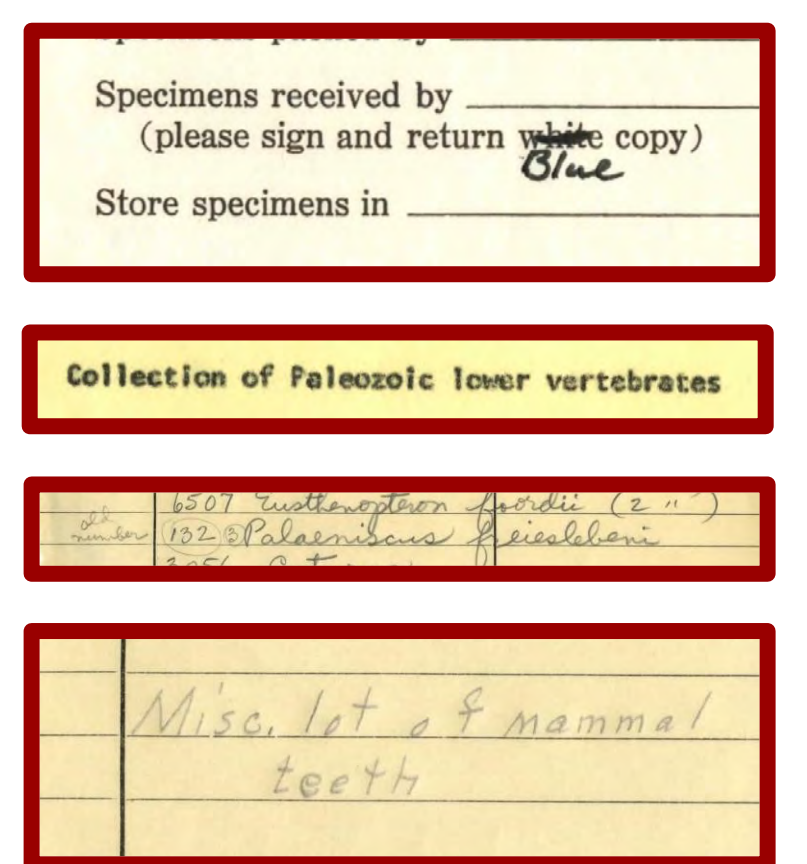 Specimens received by
(please sign and return white copy)
Blue
Store specimens in
Collection of Paleozoic lower vertebrates
6507 Eusthenopteron foordii (2 ")
old
number (132 3 Palaeniscus freieslebeni
Misc. lot of mammal
teeth